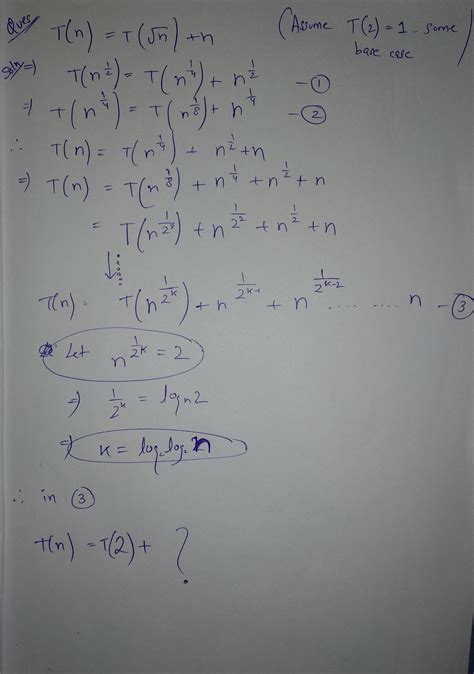 Ques T(n) = T(√n) + n (Assume T(2) = 1 - some base case)
Soln ⇒ T(n^{1/2}) = T(n^{1/4}) + n^{1/2} - ①
⇒ T(n^{1/4}) = T(n^{1/8}) + n^{1/4} - ②
∴ T(n) = T(n^{1/4}) + n^{1/2} + n
⇒ T(n) = T(n^{1/8}) + n^{1/4} + n^{1/2} + n
= T(n^{1/2^3}) + n^{1/2^2} + n^{1/2} + n
↓
T(n) = T(n^{1/2^k}) + n^{1/2^{k-1}} + n^{1/2^{k-2}} ........ n - ③
Let n^{1/2^k} = 2
⇒ 1/2^k = log_n 2
⇒ k = log_2 log_2 n
∴ in ③
T(n) = T(2) + ?